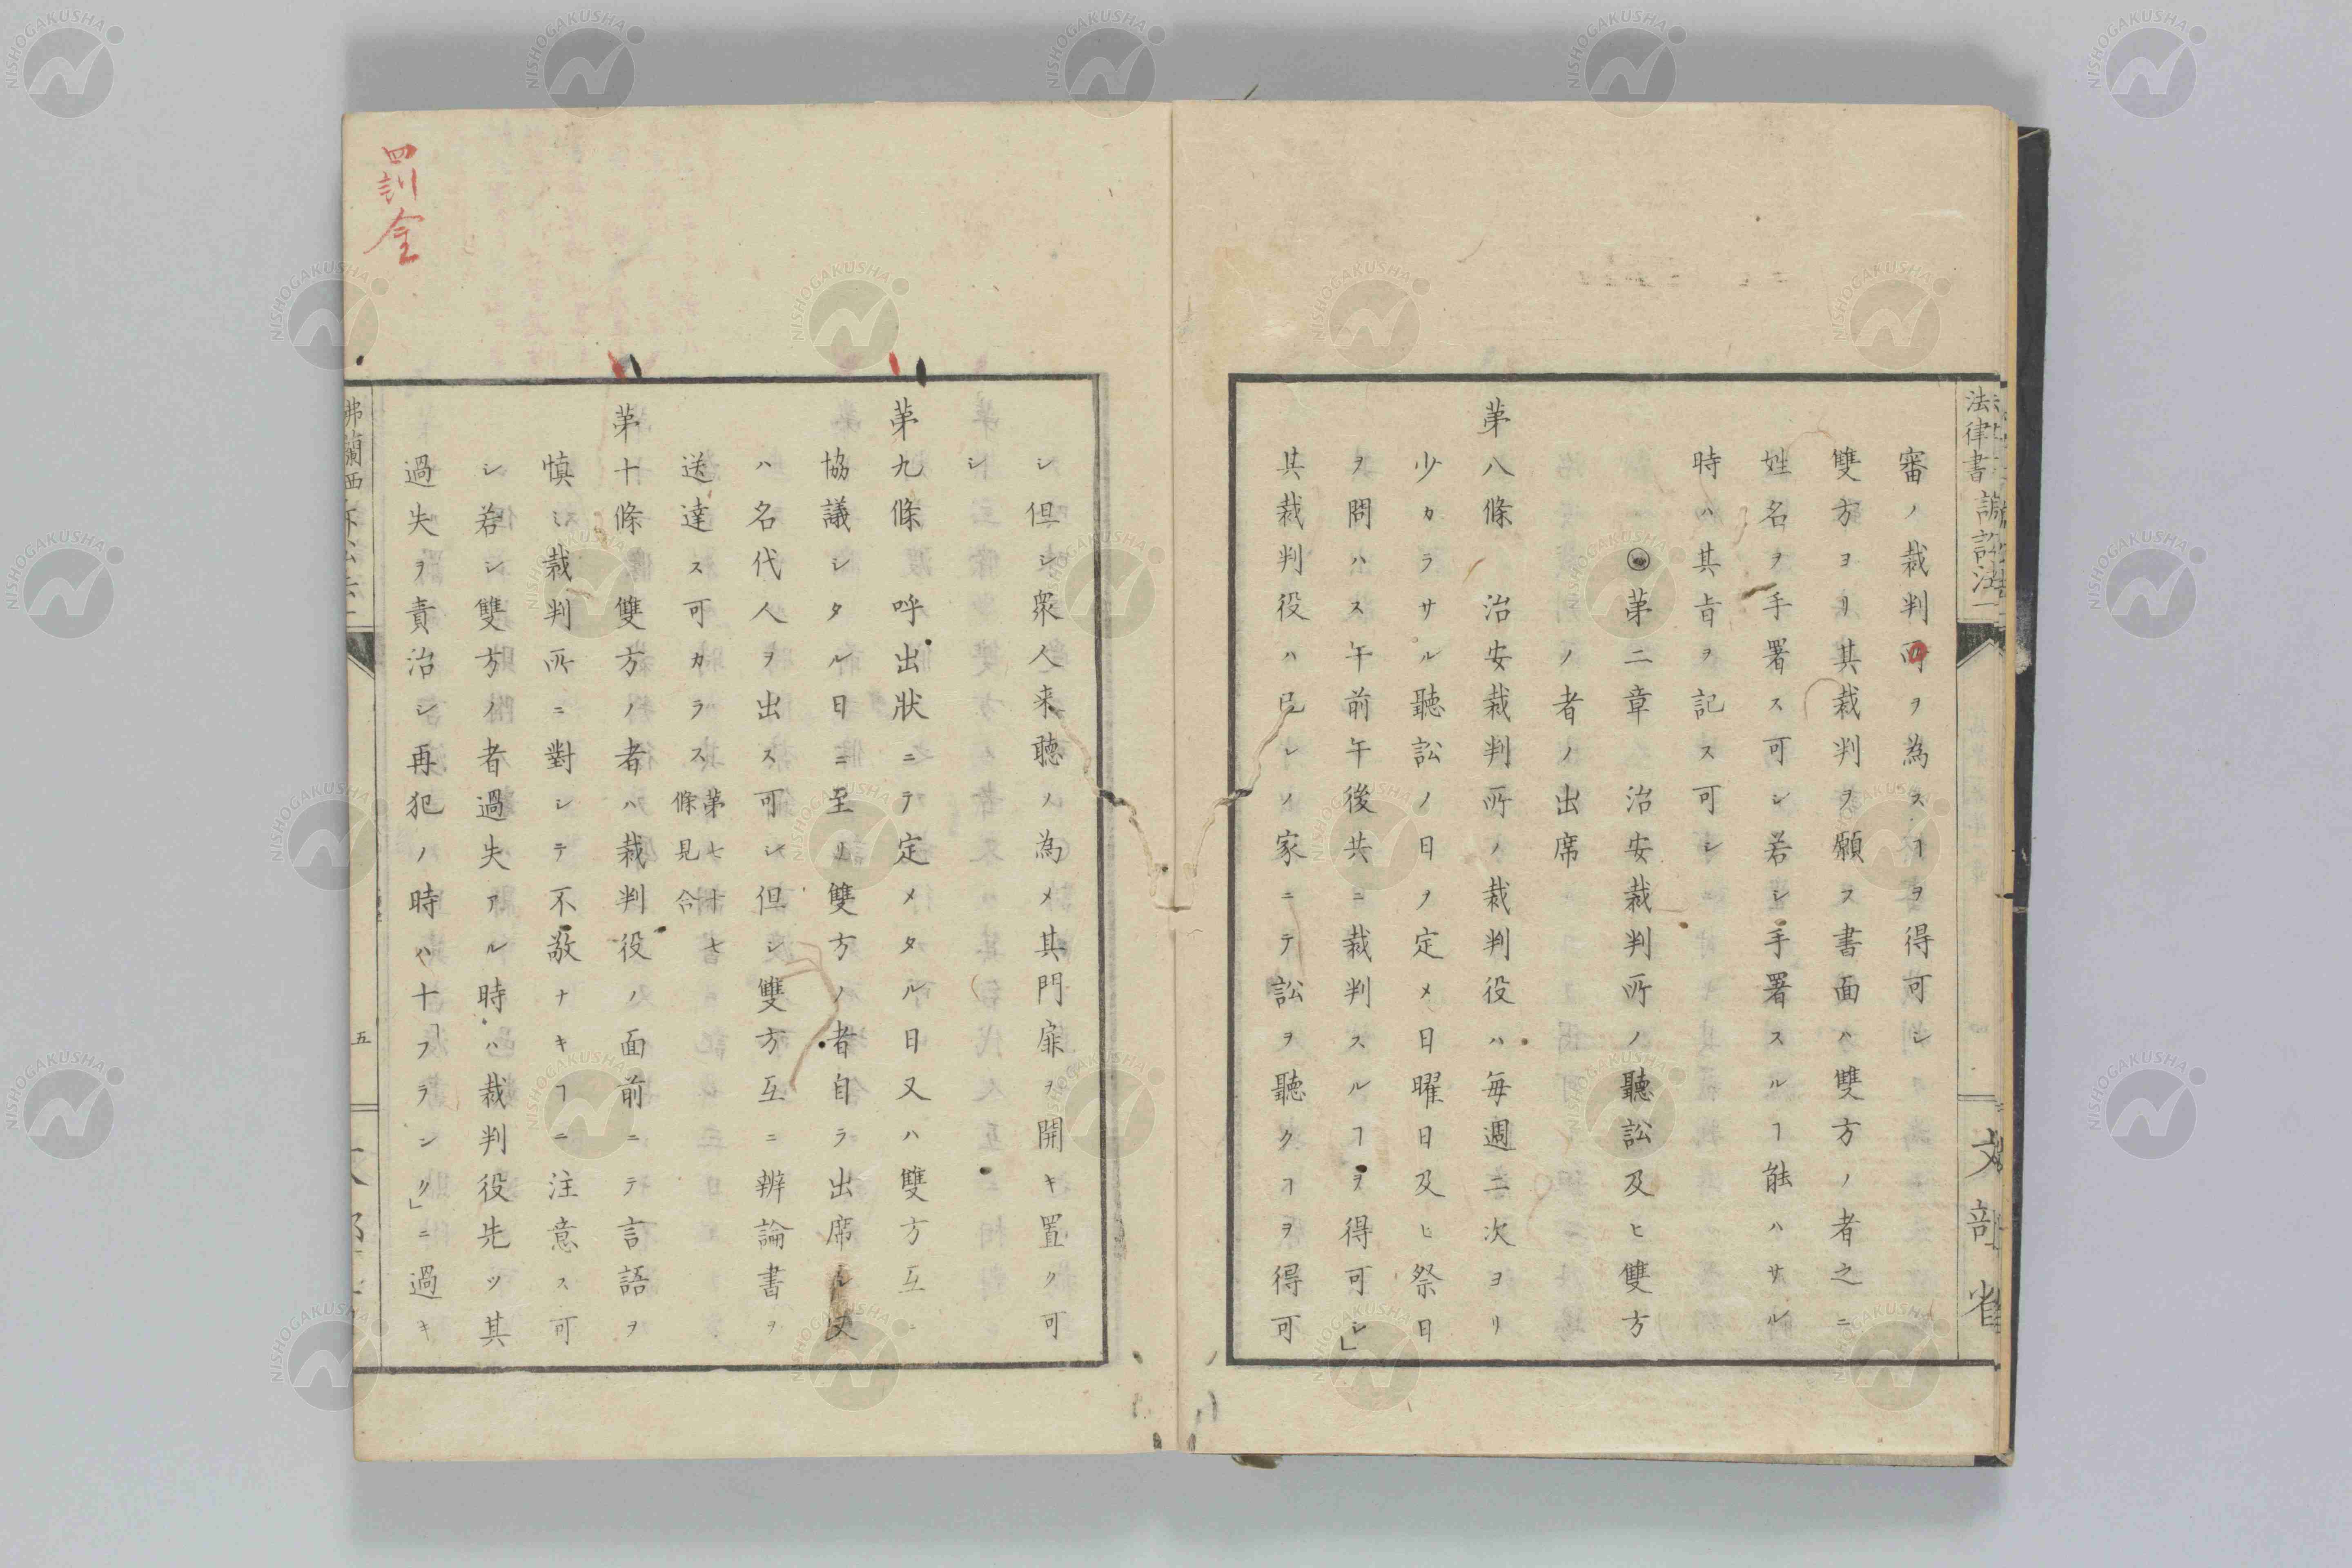 審ノ裁判所ヲ為スヿヲ得可シ
雙方ヨリ其裁判ヲ願フ書面ハ雙方ノ者之ニ
姓名ヲ手署ス可シ若シ手署スルヿ能ハサル
時ハ其旨ヲ記ス可シ
◉第二章 治安裁判所ノ聽訟及ヒ雙方
ノ者ノ出席
第八條 治安裁判所ノ裁判役ハ毎週二次ヨリ
少カラサル聽訟ノ日ヲ定メ日曜日及ヒ祭日
ヲ問ハス午前午後共ニ裁判スルヿヲ得可シ」
其裁判役ハ已レノ家ニテ訟ヲ聽クヿヲ得可
シ但シ衆人来聽ノ為メ其門扉ヲ開キ置ク可
シ
第九條 呼出狀ニテ定メタル日又ハ雙方互ニ
協議シタル日ニ至リ雙方ノ者自ラ出席シ又
ハ名代人ヲ出ス可シ但シ雙方互ニ辨論書ヲ
送達ス可カラス 第七十七
條見合
第十條 雙方ノ者ハ裁判役ノ面前ニテ言語ヲ
慎ミ裁判所ニ對シテ不敬ナキヿニ注意ス可
シ若シ雙方ノ者過失アル時ハ裁判役先ツ其
過失ヲ責治シ再犯ノ時ハ十「フランク」ニ過キ
罰金
法律書 訴訟法一
文部省
佛蘭西
五
NISHOGAKUSHA